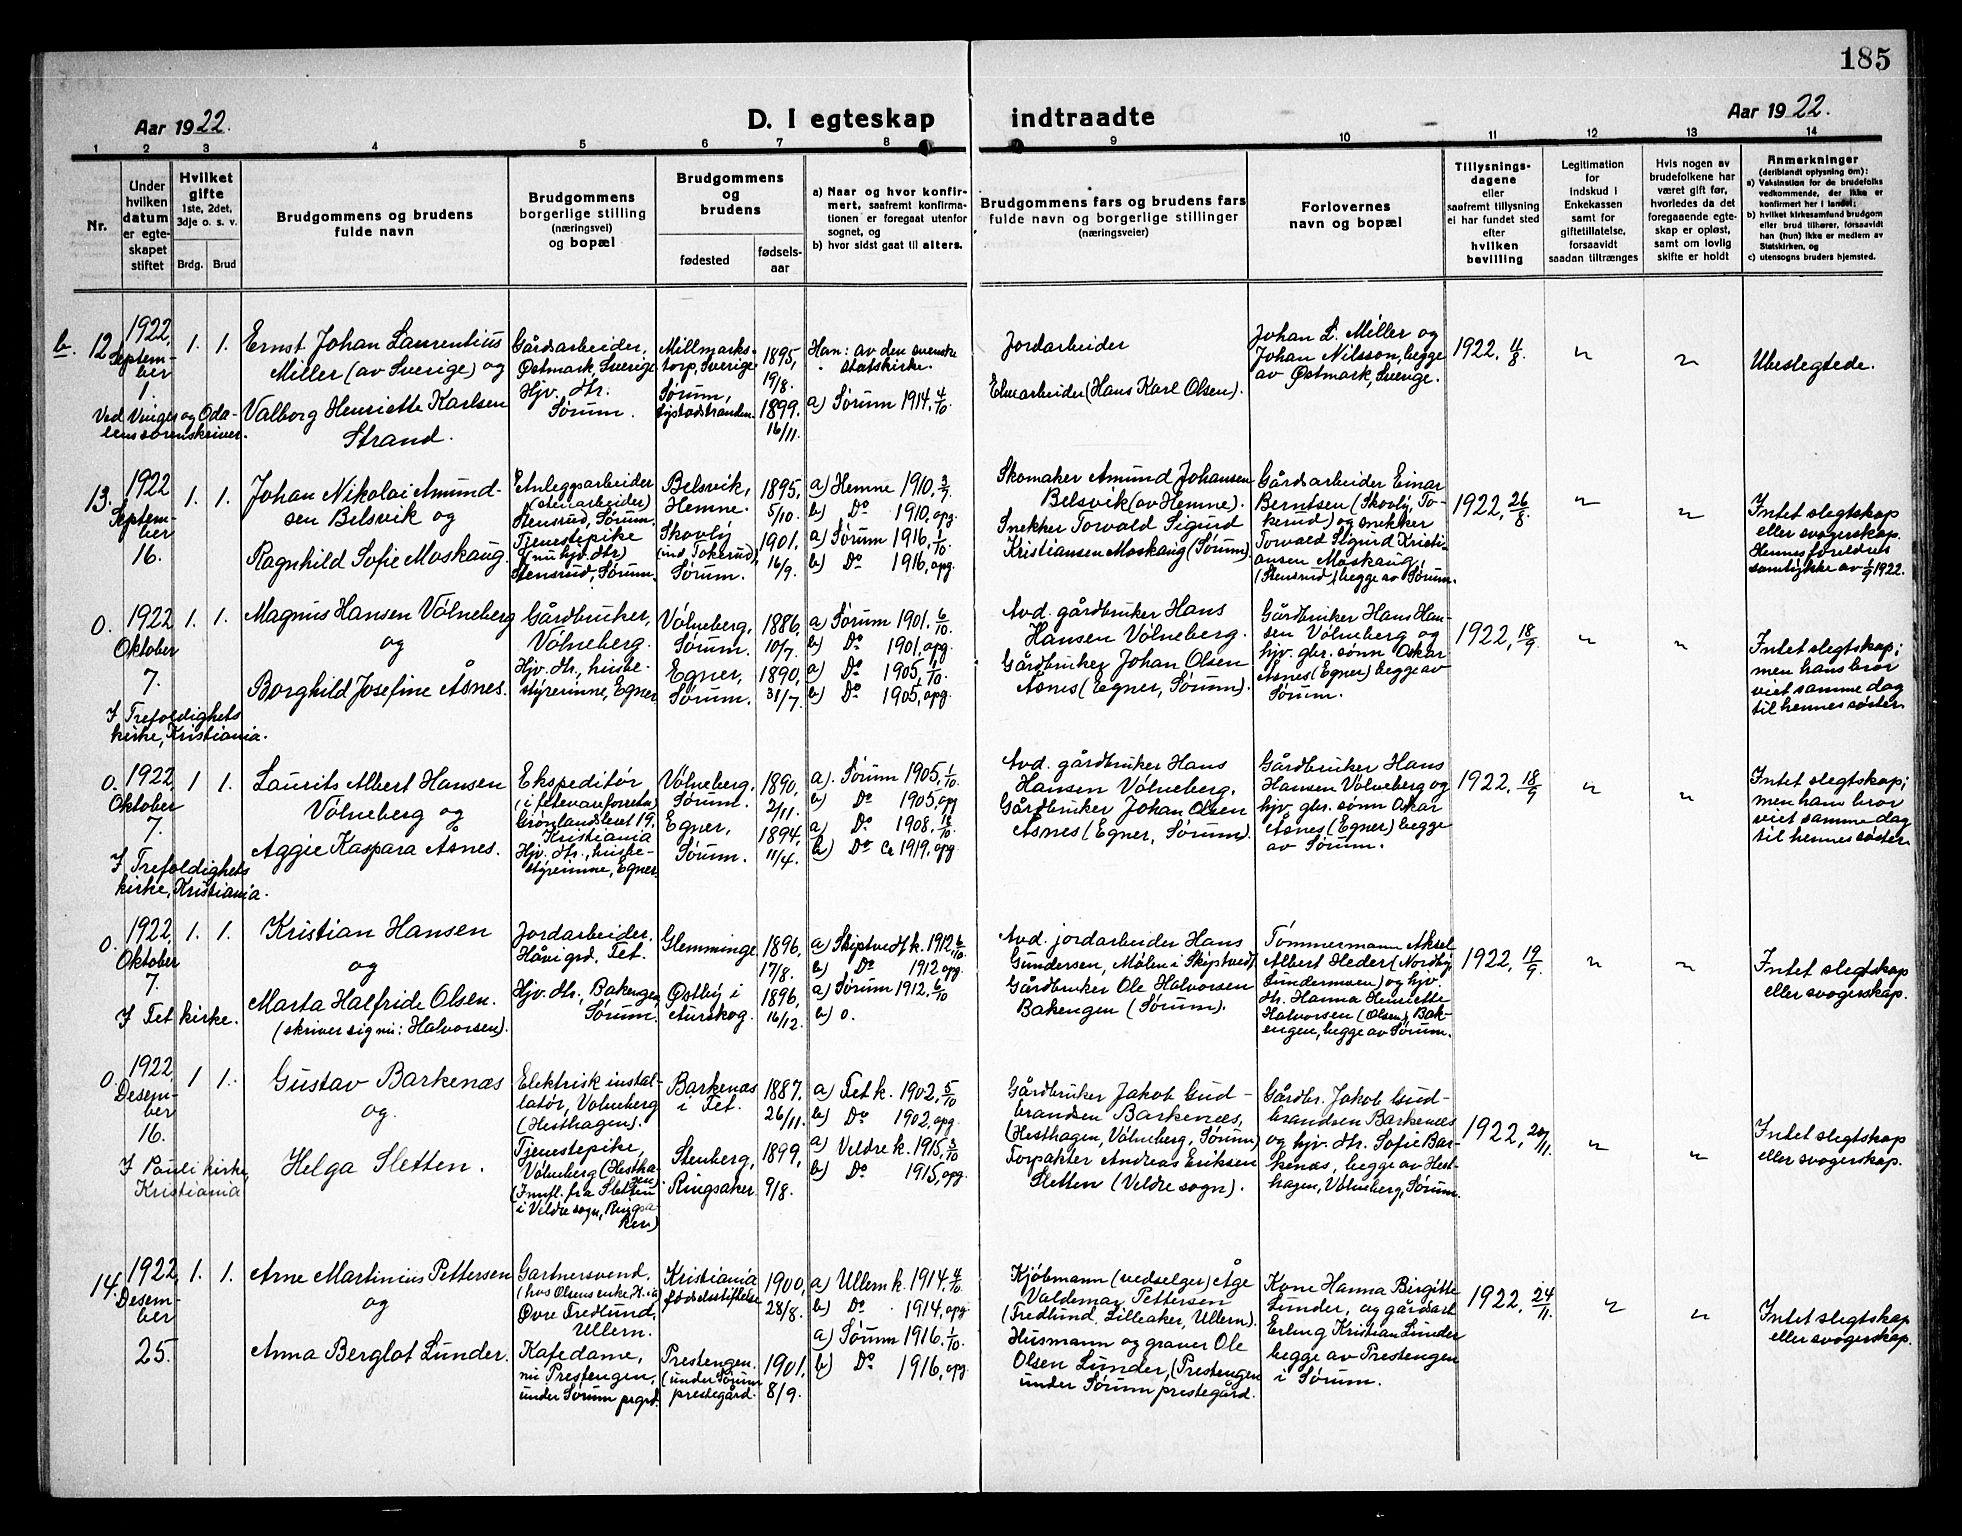 185
Aar 1922.
D. I egteskap indtraadte
Aar 1922.
1 2 3 4 5 6 7 8 9 10 11 12 13 14
Nr.
Under
hvilken
datum
er egte-
skapet
stiftet
Hvilket
gifte
1ste, 2det,
3dje o. s. v.
Brdg. Brud
Brudgommens og brudens
fulde navn
Brudgommens
borgerlige stilling
(næringsvei)
og bopæl
Brudgommens
og
brudens
fødested
fødsels-
aar
a) Naar og hvor konfir-
mert, saafremt konfirma-
tionen er foregaat utenfor
sognet, og
b) hvor sidst gaat til alters.
Brudgommens fars og brudens fars
fulde navn og borgerlige stillinger
(næringsveier)
Forlovernes
navn og bopæl
Tillysnings-
dagene
eller
saafremt tillysning
ei har fundet sted
efter
hvilken
bevilling
Legitimation
for
indskud i
Enkekassen
samt for
giftetillatelse,
forsaavidt
saadan tiltrænges
Hvis nogen av
brudefolkene har
været gift før,
hvorledes da det
foregaaende egte-
skap er opløst,
samt om lovlig
skifte er holdt
Anmerkninger
(deriblandt oplysning om):
a) Vaksination for de brudefolks
vedkommende, der ikke er
konfirmert her i landet;
b) hvilket kirkesamfund brudgom
eller brud tilhører, forsaavidt
han (hun) ikke er medlem av
Statskirken, og
c) utensogns bruders hjemsted.
b. 12.
1922,
Septem-
ber
1.
Ved Vinger og Oda-
lens sorenskriver.
1. 1.
Ernst Johan Laurentius
Miller (av Sverige) og
Valborg Henriette Karlsen
Strand.
Gårdsarbeider,
Østmark, Sverige
Hjv. dtr.
Sørum.
Millmarks-
torp, Sverige
Sørum,
1895,
19/8.
1899.
16/11.
Han: av den svenske
statskirke.
a) Sørum 1914, 4/10.
Jordarbeider
Elvearbeider (Hans Karl Olsen).
Johan L. Miller og
Johan Nilsson, begge
av Østmark, Sverige.
1922, 11/8
"
"
Ubeslegtede.
13.
1922
Septem-
ber
16.
1. 1.
Johan Nikolai Amund-
sen Belsvik og
Ragnhild Sofie Moskaug.
Anleggsarbeider
(stenarbeider)
Stensrud, Sørum.
Tjenestepike
(nu hjv. dtr)
Stensrud, Sørum.
Belsvik,
Hemne.
Skovly
(ind. Tokerud),
Sørum.
1895,
5/10.
1901.
16/9.
a) Hemne 1910, 3/7.
b) Do 1910, opg.
a) Sørum 1916, 1/10.
b) Do 1916, opg.
Skomaker Amund Johansen
Belsvik (av Hemne).
Snekker Torvald Sigurd
Kristiansen Moskaug (Sørum).
Gårdsarbeider Einar
Berntsen (Skovly, To-
kerud) og snekker
Torvald Sigurd Kristi-
ansen Moskaug,
(Stensrud), begge av Sørum.
1922, 26/8
"
"
Intet slegtskap
eller svogerskap.
Hennes foreldres
samtykke av 1/9 1922.
0.
1922
Oktober
7.
I Trefoldighets
kirke, Kristiania.
1. 1.
Magnus Hansen Vølneberg
og
Borghild Josefine Åsnes.
Gårdbruker,
Vølneberg.
Hjv. dtr., husbe-
styrerinne, Egner.
Vølneberg,
Sørum.
Egner,
Sørum.
1886,
10/7.
1890,
31/7.
a) Sørum 1901, 6/10.
b) Do 1901, opg.
a) Do 1905, 1/10.
b) Do 1905, opg.
Avd. gårdbruker Hans
Hansen Vølneberg.
Gårdbruker Johan Olsen
Åsnes (Egner, Sørum).
Gårdbruker Hans Han-
sen Vølneberg og
hjv. gbr. sønn Oskar
Åsnes (Egner) begge av
Sørum.
1922, 18/9
"
"
Intet slegtskap;
men hans bror
viet samme dag
til hennes søster.
0.
1922
Oktober
7.
I Trefoldighets
kirke, Kristiania.
1 1.
Laurits Albert Hansen
Vølneberg og
Aggie Kaspara Åsnes.
Ekspeditør
(i fetevareforretn.)
Grønlandsleret 19,
Kristiania
Hjv. dtr., husbe-
styrerinne, Egner.
Vølneberg,
Sørum.
Egner,
Sørum.
1890,
2/11.
1894,
11/4.
a). Sørum 1905, 1/10.
b) Do 1905, opg
a) Do 1908, 18/10.
b) Do Ca 1919, opg.
Avd. gårdbruker Hans
Hansen Vølneberg.
Gårdbruker Johan Olsen
Åsnes (Egner, Sørum).
Gårdbruker Hans
Hansen Vølneberg og
hjv. gbr. sønn Oskar
Åsnes (Egner) begge
av Sørum.
1922, 18/9
"
"
Intet slegtskap;
men hans bror
viet samme dag
til hennes søster.
0.
1922,
Oktober
7.
I Fet kirke.
1. 1.
Kristian Hansen
og
Marta Halfride Olsen.
(skriver sig nu: Halvorsen).
Jordarbeider.
Håvi grd, Fet.
Hjv. dtr., Bakengen,
Sørum.
Glemminge
Østby i
Aurskog.
1896,
17/8.
1896,
16/12.
a) Skiptvedt k. 1912, 6/10.
b) Do 1912 opg.
a) Sørum 1912, 6/10
b) 0.
Avd. jordarbeider Hans
Gundersen, Mølen i Skiptvedt.
Gårdbruker Ole Halvorsen
Bakengen (Sørum).
Tømmermann Aksel
Albert Heder (Nordby,
Sundermoen) og hjv.
dtr. Hanna Henriette
Halvorsen (Olsen), Bak-
engen, begge av Sørum.
1922, 19/9.
"
"
Intet slegtskap
eller svogerskap.
0.
1922
Desem-
ber
16.
I Pauli kirke,
Kristiania
1 1.
Gustav Barkenæs
og.
Helga Sletten.
Elektrisk instal-
latør, Vølneberg
(Hesthagen).
Tjenestepike,
Vølneberg (Hestha-
gen)
(Innfl. fra Sletten
i Veldre sogn, Ringsa-
ker)
Barkenæs
i Fet.
Stenberg,
Ringsaker.
1887.
26/11.
1899,
9/8.
a) Fet k. 1902, 5/10
b) Do 1902, opg.
a) Veldre k. 1915, 3/10
b) Do 1915, opg.
Gårdbruker Jakob Gud-
brandsen Barkenæs,
(Hesthagen, Vølneberg, Sørum)
Forpakter Andreas Eriksen
Sletten (Veldre sogn).
Gårdbr. Jakob Gud-
brandsen Barkenæs
og hjv. dtr. Sofie Bar-
kenæs, begge av Hest-
hagen, Vølneberg, Sørum.
1922, 20/11.
"
"
Intet slegtskap
eller svogerskap.
14.
1922,
Desem-
ber
25.
1. 1.
Arne Martinius Pettersen
og
Anna Berglot Lunder.
Gartnersvend,
(hos Olsens enke
Øvre Fredlund,
Ullern.
Kafedame,
nu Prestengen,
under Sørum prgrd.
Kristiania
fødselsstiftelse
Prestengen.
(under Sørum
prestegård.
1900,
28/8.
1901,
8/9.
a) Ullern k. 1914, 4/10.
b) Do 1914, opg.
a) Sørum 1916, 1/10.
b) Do 1916, opg.
Kjøbmann (vedselger) Åge
Valdemar Pettersen
(Fredlund, Lilleaker, Ullern).
Husmann og graver Ole
Olsen Lunder, (Prestengen
under Sørum prestegård.
Kone Hanna Birgitte
Lunder, og gårdsarb.
Erling Kristian Lunder
begge av Prestengen
i Sørum.
1922, 24/11.
"
"
Intet slegtskap
eller svogerskap.